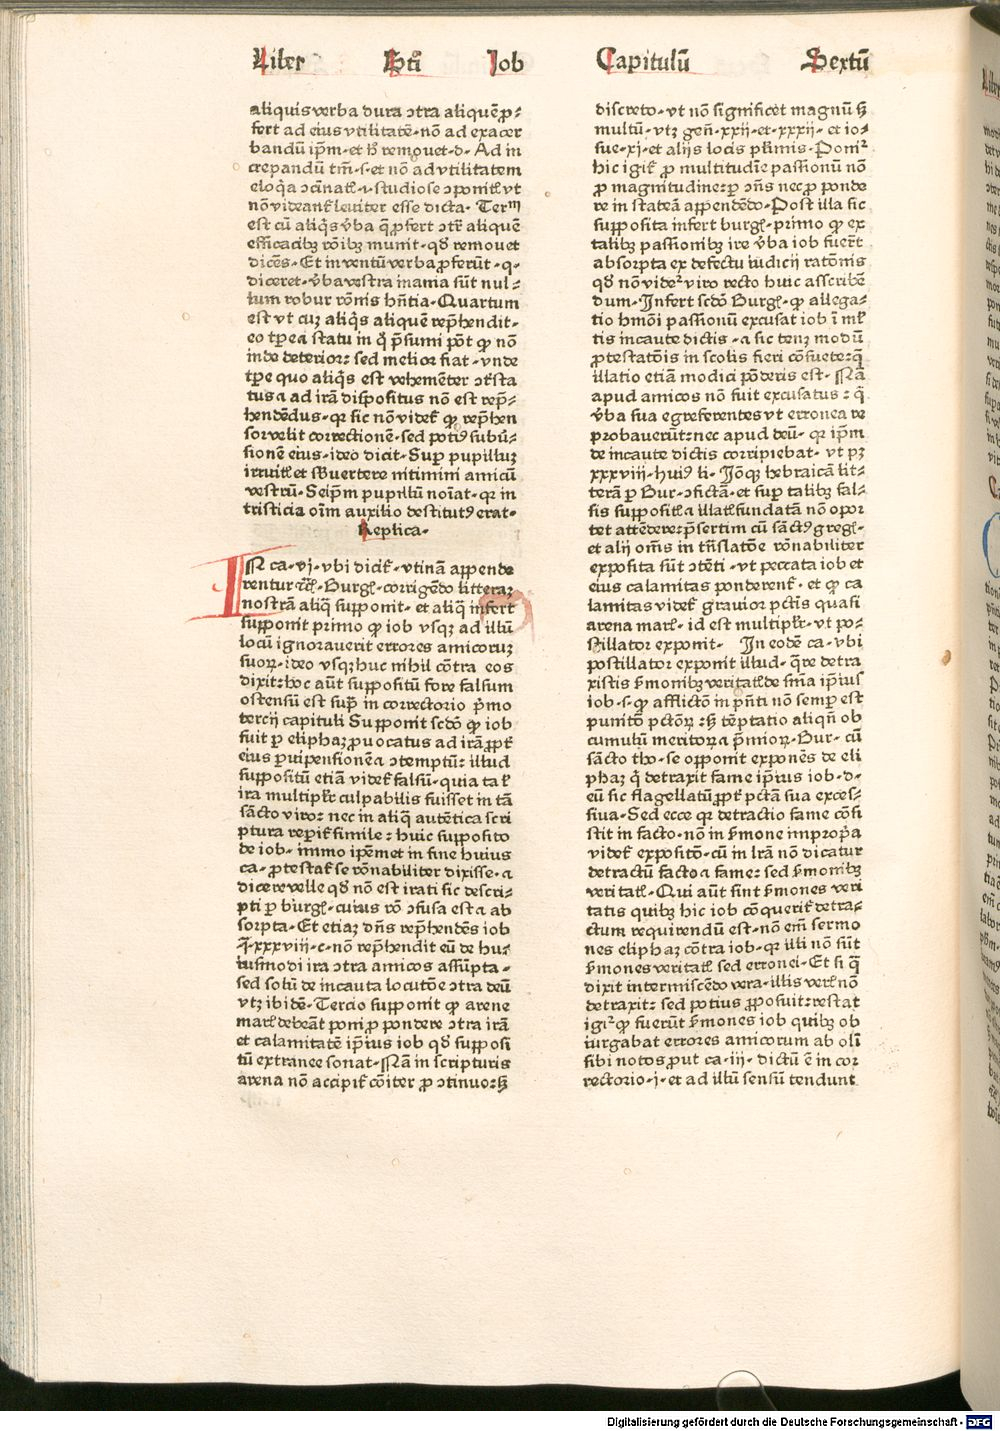 Liber Scti Job Capitulū Sextū
aliquis verba dura ↄtra aliquē ꝓ-
fert ad eius vtilitatē· nō ad exacer
bandū ip̄m· et h̄ remouet· d· Ad in
crepandū tm̄· s· et nō ad vtilitatem
eloq̄a ↄcinatꝭ· i· studiose ↄponitꝭ vt
nō videant᷑ leuiter esse dicta· Ter᷒
est cū aliq̄s v̄ba q̄ ꝓfert ↄtᷓ aliquē
efficacibꝫ rōibꝫ munit· qd̄ remouet
dicēs· Et in ventū verba ꝓferūt· q·
diceret· v̄ba vestra inania sūt nul-
lum robur rōnis hn̄tia· Quartum
est vt cuꝫ aliq̄s aliquē rep̄hendit·
eo tp̄e a statu in q̄ p̄sumi pōt ꝙ nō
inde deterior: sed melior fiat· vnde
tp̄e quo aliq̄s est vehemēter ↄtᷓsta
tus a ad irā dispositus nō est rep̄-
hendēdus· qꝛ sic nō videt᷑ ꝙ rep̄hen
sor velit correctionē· sed potiꝰ subū-
sionē eius· ideo dicit· Suꝑ pupilluꝫ
irruitꝭ et sb̄uertere nitimini amicū
vestrū· Seip̄m pupillū noīat· qꝛ in
tristicia oīm auxilio destitutꝰ erat·
Replica·
IN ca· vj· vbi dicit᷑· vtinā appende
rentur ⁊c̄· Burgꝭ· corrigēdo litteraꝫ
nostrā aliq̄ supponit· et aliq̄ infert
supponit primo ꝙ iob vsqꝫ ad illū
locū ignorauerit errores amicoruꝫ
suoꝝ· ideo vsqꝫ huc nihil cōtra eos
dixit: hoc aūt suppositū fore falsum
ostensū est sup̄ in correctorio p̄mo
tercij capituli Supponit scd̄o ꝙ iob
fuit ꝑ eliphaꝫ ꝓuocatus ad irā ꝓpt᷑
eius ꝑuipensionē a ↄtemptū: illud
suppositū etiā videt᷑ falsū· quia tal᷑
ira multiplr̄ culpabilis fuisset in tā
sācto viro: nec in aliq̄ autētica scri
ptura reꝑit᷑ simile: huic supposito
de iob· immo ip̄emet in fine huius
ca· ꝓtestat᷑ se rōnabiliter dixisse· a
dicere velle qd̄ nō est irati sic descri-
pti ꝑ burgꝭ· cuius rō ↄfusa est a ab
sorpta· Et etiaꝫ dn̄s rep̄hendēs iob
j· xxxviij· c· nō rep̄hendit eū de hu-
iusmodi ira ↄtra amicos assūpta·
sed solū de incauta locutōe ↄtra deū
vtꝫ ibidē· Tercio supponit ꝙ arene
marꝭ debeāt poni ꝓ pondere ↄtra irā
et calamitatē ip̄ius iob qd̄ supposi
tū extranee sonat· Nā in scripturis
arena nō accipit᷑ cōiter ꝓ ↄtinuo: sꝫ
discreto· vt nō significet magnū sꝫ
multū· vtꝫ gen̄· xxij· et· xxxij· et io-
sue· xj· et alijs locis pl᷑imis· Ponit᷑
hic igit᷑ ꝓ multitudīe passionū nō
ꝓ magnitudine: ꝑ ↄn̄s nec ꝓ ponde
re in stateā appendēdo· Post illa sic
supposita infert burgꝭ· primo ꝙ ex
talibꝫ passionibꝫ ire v̄ba iob fuer̄t
absorpta ex defectu iudicij ratōnis
qd̄ nō videt᷑ viro recto huic asscribē
dum· Infert scd̄o Burgꝭ· ꝙ allega-
tio hmōi passionū excusat iob ī ml᷑
tis incaute dictis· a sic tenꝫ modū
ꝓtestatōis in scolis fieri cōsuete: q̄
illatio etiā modici pōderis est· Nā
apud amicos nō fuit excusatus: q̄
v̄ba sua egre ferentes vt erronea re
probauerūt: nec apud deū· qꝛ ip̄m
de incaute dictis corripiebat· vt pꝫ
xxxviij· huiꝰ li· Ioq̄ꝫ hebraicā lit-
terā ꝑ Bur· ↄfictā· et suꝑ talibꝫ fal-
sis suppositꝭ a illatꝭ fundatā nō opor
tet attēdere: p̄sertim cū sāctꝰ gregꝭ·
et alij oīns in tn̄slatōe rōnabiliter
exposita sūt ↄtēti· vt peccata iob et
eius calamitas ponderent᷑· et ꝙ ca
lamitas videt᷑ grauior pctīs quasi
arena marꝭ· id est multiplr̄· vt po-
stillator exponit· In eodē ca· vbi
postillator exponit illud· q̄re detra
xistis ẜmonibꝫ veritatꝭ de fīna ip̄ius
iob· s· ꝙ afflictō in p̄nti nō semꝑ est
punitō pctōꝝ: sꝫ tēptatio aliqn̄ ob
cumulū meritoꝝ a p̄mioꝝ· Bur· cū
sācto tho· se opponit exponēs de eli
phaꝫ q̄ detraxit fame ip̄ius iob· d·
eū sic flagellatū ꝓpt᷑ pctā sua exces-
siua· Sed ecce qꝛ detractio fame cōsi
stit in facto· nō in ẜmone impropa
videt᷑ expositō· cū in lrā nō dicatur
detractū facto a fame: sed ẜmonibꝫ
veritatꝭ· Qui aūt sint ẜmones veri
tatis quibꝫ hic iob cōquerit᷑ detra-
ctum requirendū est· nō em̄ sermo
nes eliphaꝫ cōtra iob· qꝛ illi nō sūt
ẜmones veritatꝭ sed erronei· Et si q̄
dixit intermiscēdo vera· illis verꝭ nō
detraxit: sed potius ꝓposuit: restat
igit᷑ ꝙ fuerūt ẜmones iob quibꝫ ob
iurgabat errores amicorum ab oli
sibi notos ꝓut ca· iij· dictū ē in cor
rectorio· j· et ad illū sensū tendunt
Digitalisierung gefördert durch die Deutsche Forschungsgemeinschaft - DFG